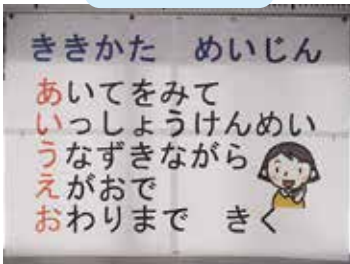 ききかた　めいじん
あいてをみて
いっしょうけんめい
うなずきながら
えがおで
おわりまで　きく